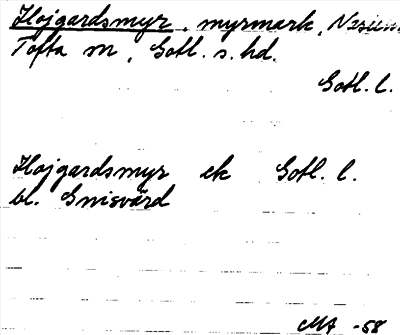 Hojgardsmyr, myrmark, Nasium
Tofta sn, Gotl. s. hd.
Gotl. l.
Hojgardsmyr ek Gotl. l.
bl. Gnisvärd
MA -58